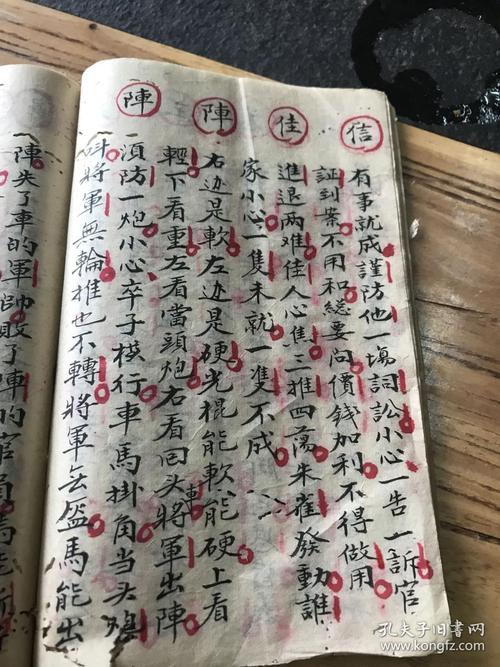 信
有事就成謹防他一塲詞訟小心一告一訴官
証到案不用和総要问價錢加利不得做用
佳
進退两难佳人心焦三推四蕩朱雀發動誰
家小心一隻未就一隻不成
陣
右边是軟左边是硬光棍能軟能硬上看
輕下看重左看當頭炮右看回头將軍出陣
陣
須防一炮小心卒子横行車馬掛角当头炮
將軍無輪推也不轉將軍去盔馬能出
陣失了車的軍帥敗了陣的官
孔夫子旧书网